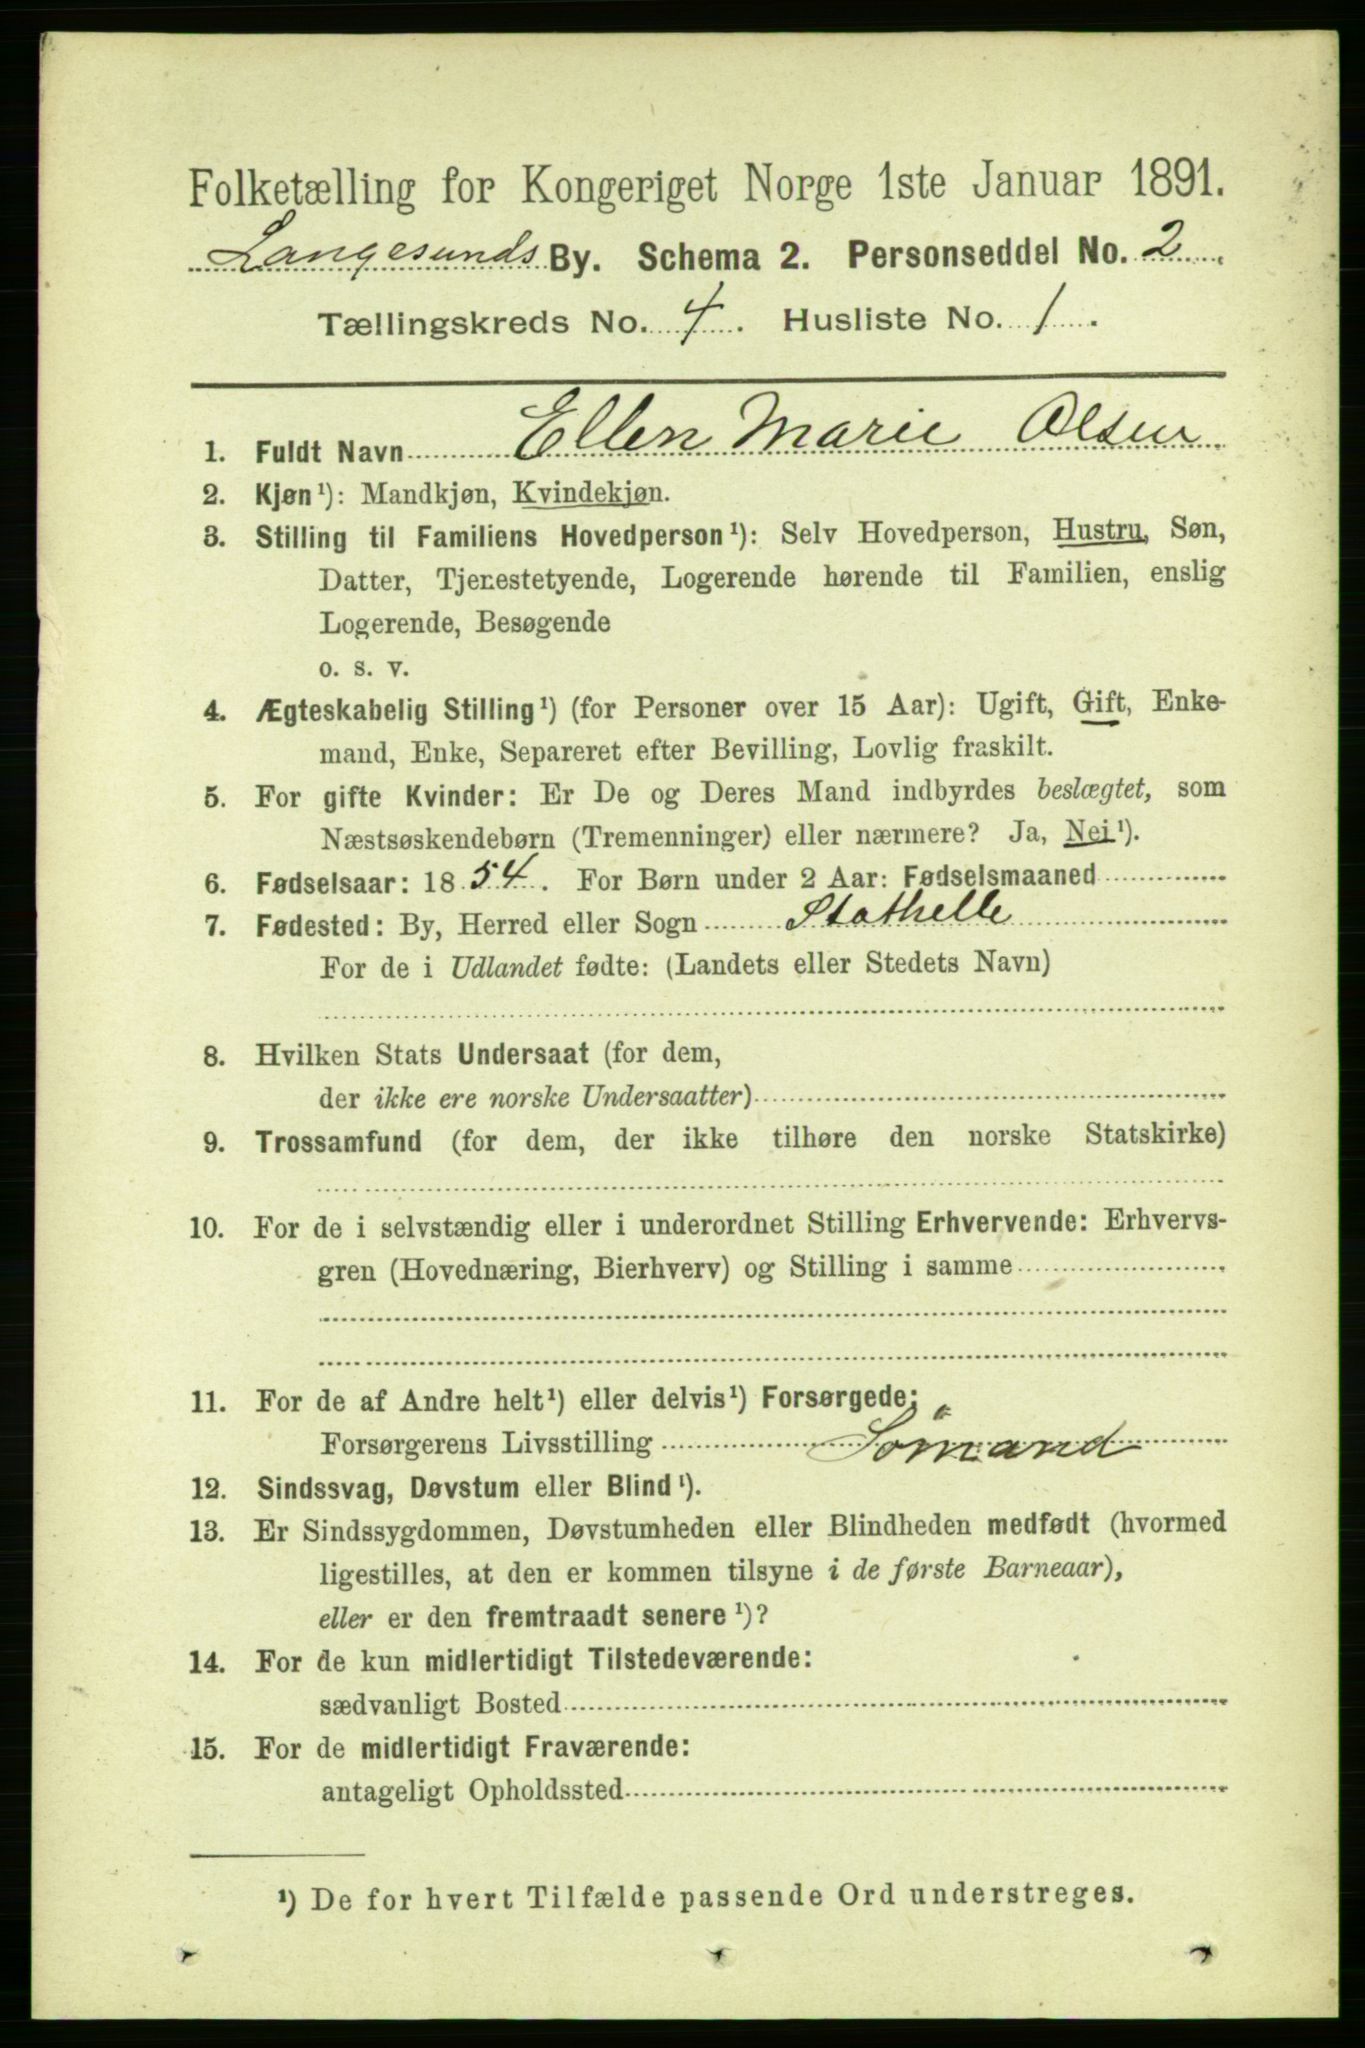 Folketælling for Kongeriget Norge 1ste Januar 1891.
Langesunds By. Schema 2. Personseddel No. 2
Tællingskreds No. 4. Husliste No. 1.
1. Fuldt Navn Ellen Marie Olsen
2. Kjøn¹): Mandkjøn, Kvindekjøn.
3. Stilling til Familiens Hovedperson¹): Selv Hovedperson, Hustru, Søn,
Datter, Tjenestetyende, Logerende hørende til Familien, enslig
Logerende, Besøgende
o. s. v.
4. Ægteskabelig Stilling¹) (for Personer over 15 Aar): Ugift, Gift, Enke-
mand, Enke, Separeret efter Bevilling, Lovlig fraskilt.
5. For gifte Kvinder: Er De og Deres Mand indbyrdes beslægtet, som
Næstsøskendebørn (Tremenninger) eller nærmere? Ja, Nei¹).
6. Fødselsaar: 1854. For Børn under 2 Aar: Fødselsmaaned
7. Fødested: By, Herred eller Sogn Stathelle
For de i Udlandet fødte: (Landets eller Stedets Navn)
8. Hvilken Stats Undersaat (for dem,
der ikke ere norske Undersaatter)
9. Trossamfund (for dem, der ikke tilhøre den norske Statskirke)
10. For de i selvstændig eller i underordnet Stilling Erhvervende: Erhvervs-
gren (Hovednæring, Bierhverv) og Stilling i samme
11. For de af Andre helt¹) eller delvis¹) Forsørgede:
Forsørgerens Livsstilling Sömand
12. Sindssvag, Døvstum eller Blind¹).
13. Er Sindssygdommen, Døvstumheden eller Blindheden medfødt (hvormed
ligestilles, at den er kommen tilsyne i de første Barneaar),
eller er den fremtraadt senere¹)?
14. For de kun midlertidigt Tilstedeværende:
sædvanligt Bosted
15. For de midlertidigt Fraværende:
antageligt Opholdssted
¹) De for hvert Tilfælde passende Ord understreges.